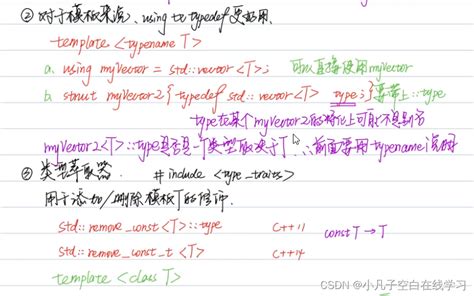 ② 对于模板来说、using 比 typedef 更好用.
template <typename T>
a. using myVector = std::vector<T>; 可以直接使用myVector
b. struct myVector2{typedef std::vector<T> type;} 要带上::type
type在某个myVector2的特化上可能不是别名
myVector2<T>::type是否是一个类型取决于T ∴前面要用typename说明
③ 类型萃取器. #include <type_traits>
用于添加/删除模板T的修饰.
std::remove_const<T>::type C++11 const T → T
std::remove_const_t<T> C++14
template <class T>
CSDN @小凡子空白在线学习